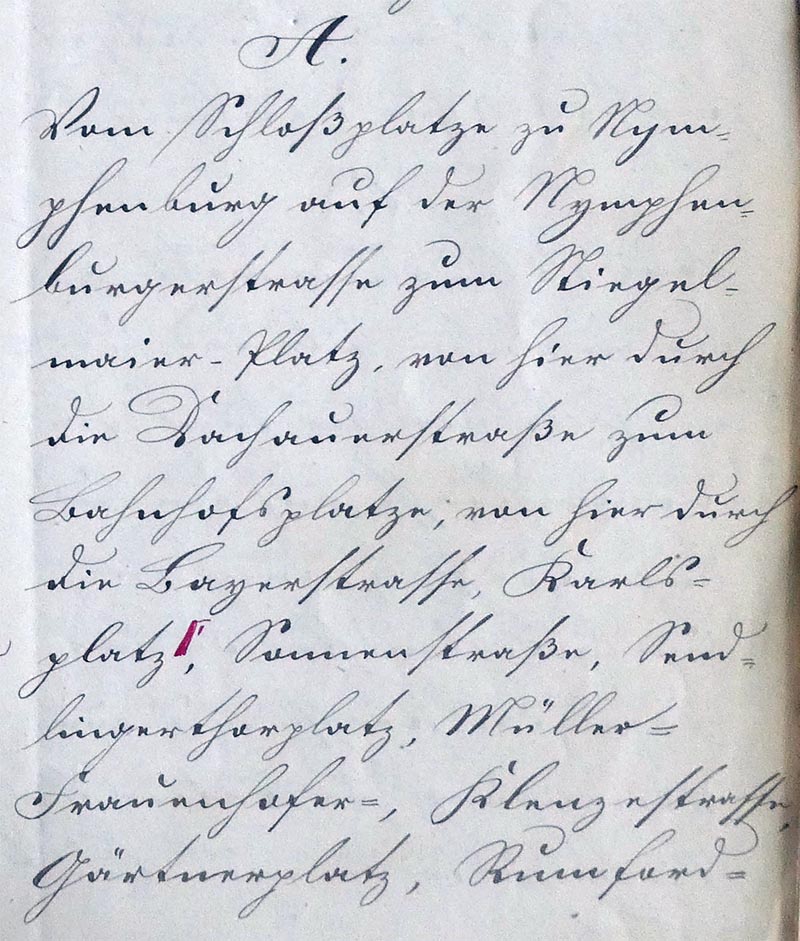 A.
Vom Schloßplatze zu Nym=
phenburg auf der Nymphen=
burgerstrasse zum Stiegel=
maier-Platz, von hier durch
die Dachauerstraße zum
Bahnhofsplatze, von hier durch
die Bayerstrasse, Karls=
platz, Sonnenstraße, Send=
lingerthorplatz, Müller=
Frauenhofer=, Klenzestrasse,
Gärtnerplatz, Rumford=